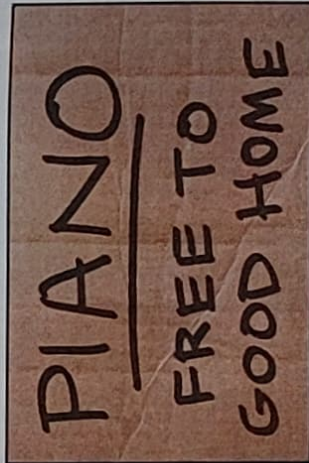 PIANO
FREE TO
GOOD HOME